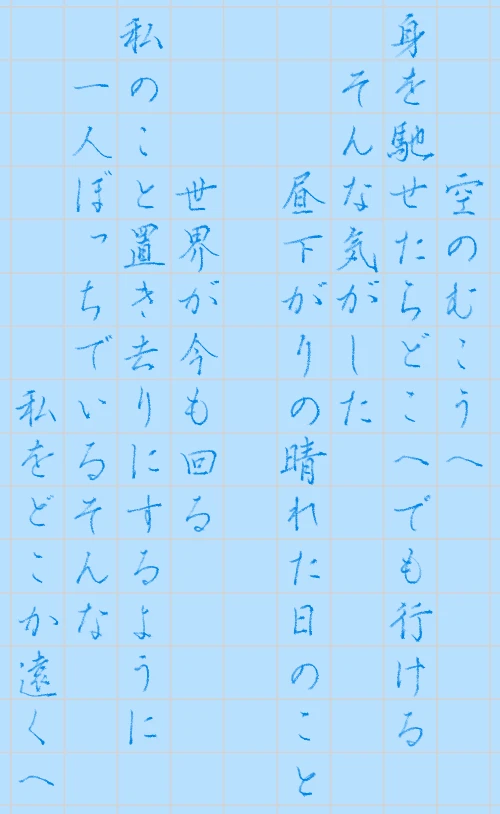 空のむこうへ
身を馳せたらどこへでも行ける
そんな気がした
昼下がりの晴れた日のこと
世界が今も回る
私のこと置き去りにするように
一人ぼっちでいるそんな
私をどこか遠くへ